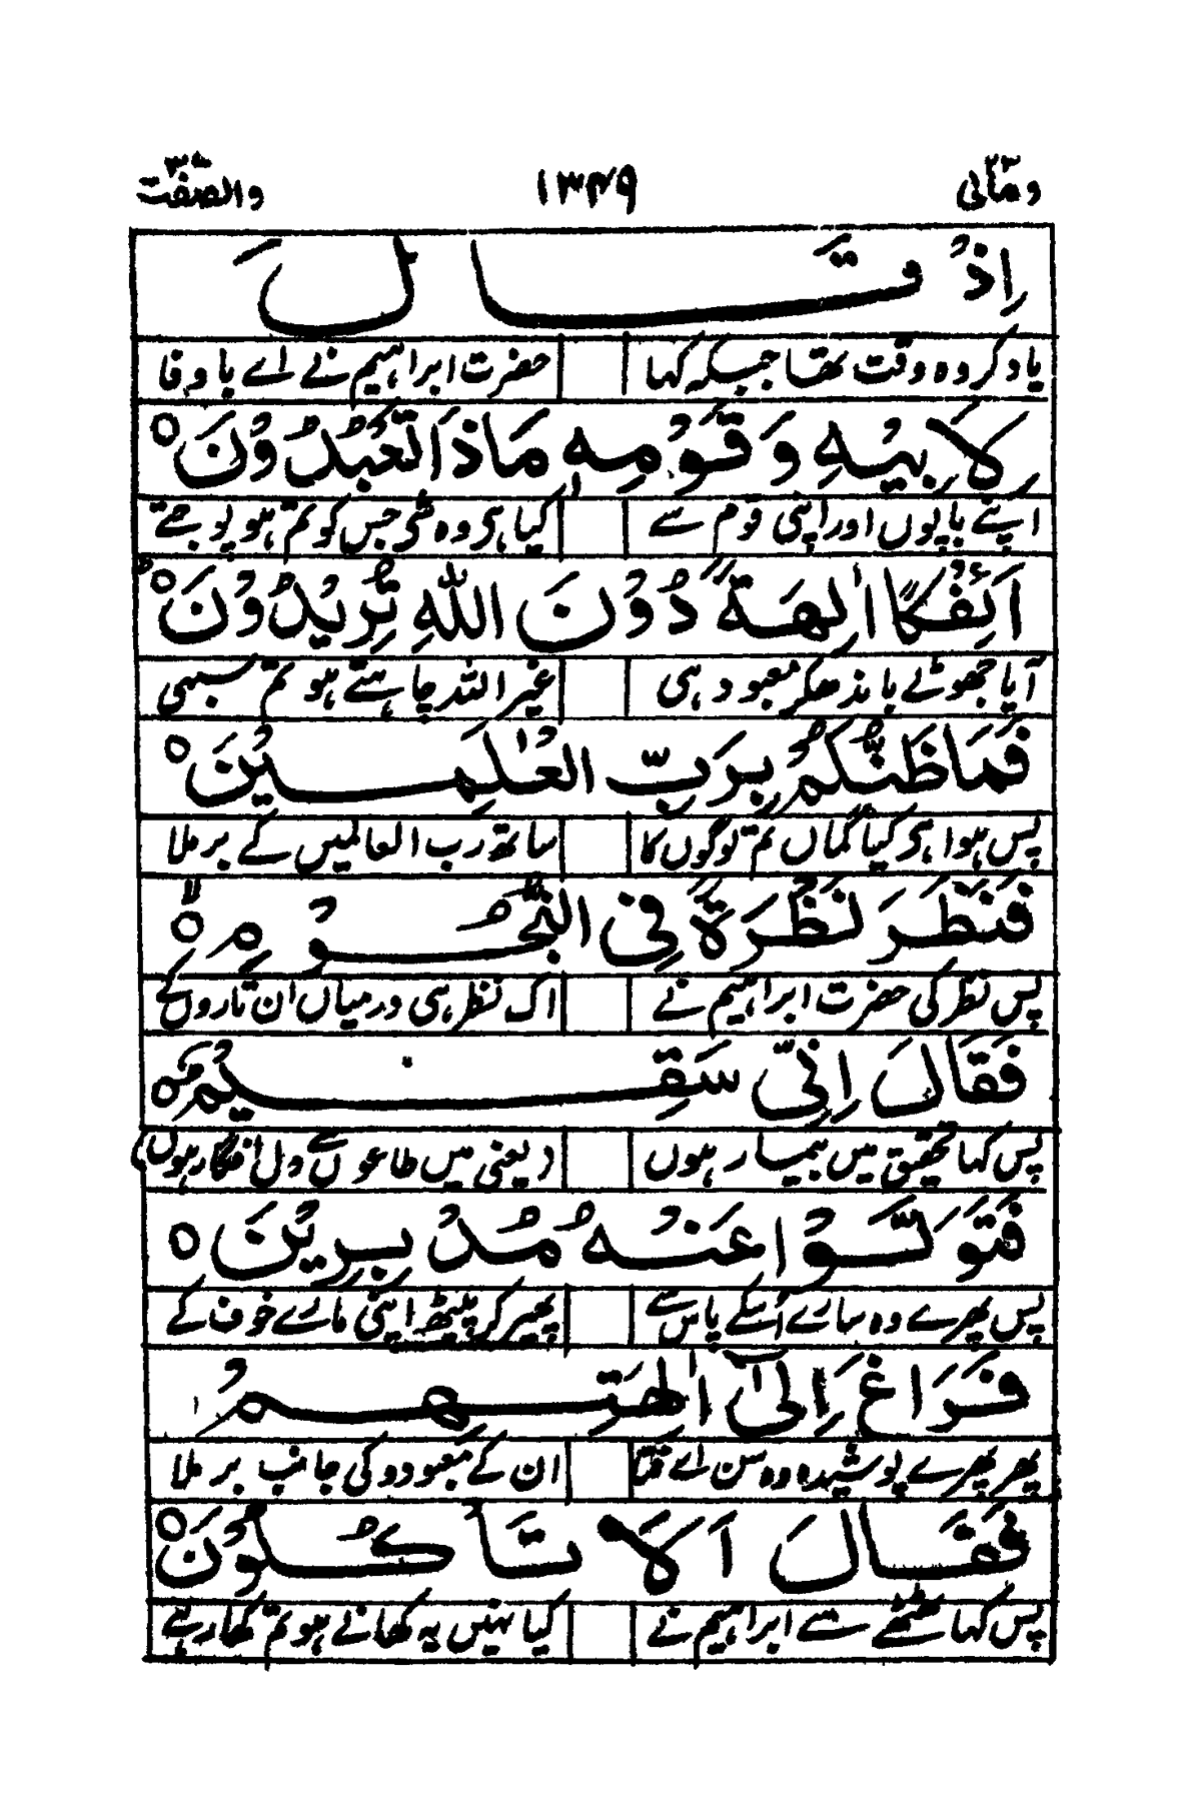 ومالی ۲۳ ۱۳۴۹ والصفت ۳۷
اِذْ قَالَ
یاد کر وہ وقت تھا جبکہ کہا حضرت ابراہیم نے اے با وفا
لِاَبِیْهِ وَ قَوْمِهٖ مَاذَا تَعْبُدُوْنَ ○
اپنے باپوں اور اپنی قوم سے کیا ہی وہ شی جس کو تم ہو پوجتے
اَئِفْكًا اٰلِهَةً دُوْنَ اللّٰهِ تُرِیْدُوْنَ ○ؕ
آیا جھوٹے باندھکر معبود ہی غیر اللہ چاہتے ہو تم سبہی
فَمَا ظَنُّكُمْ بِرَبِّ الْعٰلَمِیْنَ ○
پس ہوا ہی کیا گماں تم لوگوں کا ساتھ رب العالمیں کے بر ملا
فَنَظَرَ نَظْرَةً فِی النُّجُوْمِ ○ۙ
پس نظر کی حضرت ابراہیم نے اک نظر ہی درمیاں ان تاروں کے
فَقَالَ اِنِّیْ سَقِیْمٌ ○
پس کہا تحقیق میں بیمار ہوں (یعنی میں طاعوں سے دل افگار ہوں)
فَتَوَلَّوْا عَنْهُ مُدْبِرِیْنَ ○
پس پھرے وہ سارے اُسکے پاس سے پھیر کر پیٹھ اپنی مارے خوف کے
فَرَاغَ اِلٰۤی اٰلِهَتِهِمْ
پھر پھرے پوشیدہ وہ سن اے فتا ان کے معبودو کی جانب بر ملا
فَقَالَ اَلَا تَاْكُلُوْنَ ○
پس کہا ٹھٹھے سے ابراہیم نے کیا نہیں یہ کھانے ہو تم کھا رہے